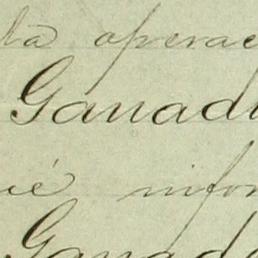 la operac
Ganad
ué infor
Ganad